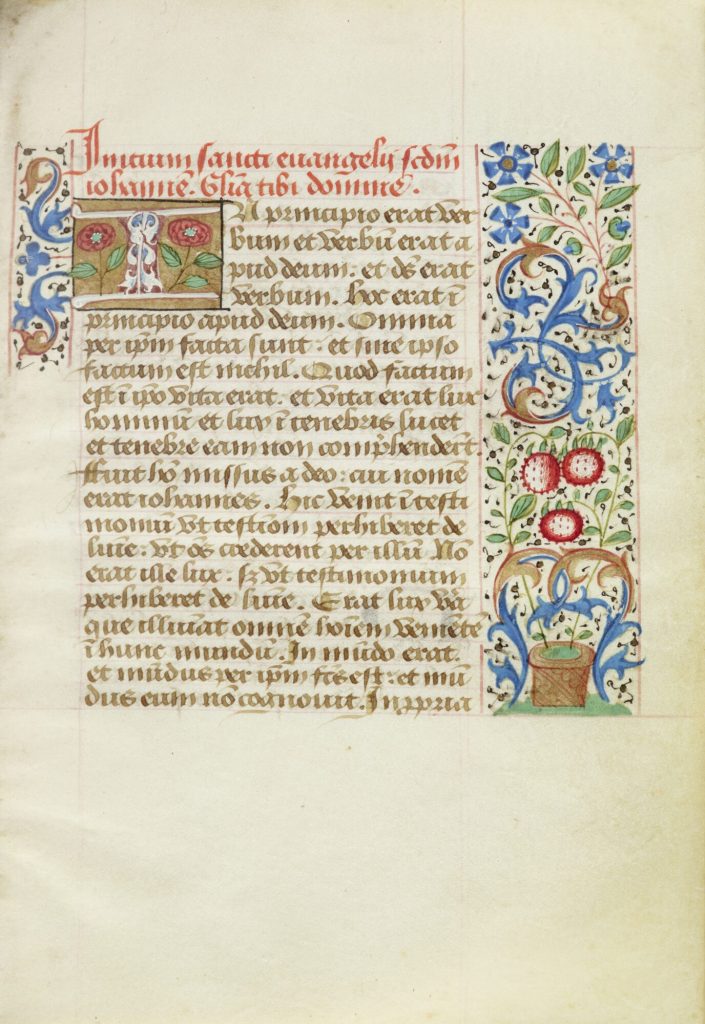 Initium sancti evangelij scdm
iohannē. Glīa tibi domine.
In principio erat ver
bum et verbū erat a
pud deum. et dꝰ erat
verbum. Hoc erat ī
principio apud deum. Omnia
per ipm̄ facta sunt : et sine ipso
factum est nichil. Quod factum
est ī ip̄o vita erat. et vita erat lux
hominū et lux ī tenebris lucet
et tenebre eam non comp̄hender̄t.
ffuit hō missus a deo : cui nomē
erat iohannes. Hic venit ī testi
moniū vt testīoīm perhiberet de
lumīe : vt oēs crederent per illū. Nō
erat ille lux : sꝫ vt testimonium
perhiberet de lumīe. Erat lux vēa
que illuīat omnē hoīem venientē
ī hunc mundū. In mūdo erat.
et mūdus per ipm̄ fc̄s est : et mū
dus eum nō cognouit. In ꝓpria